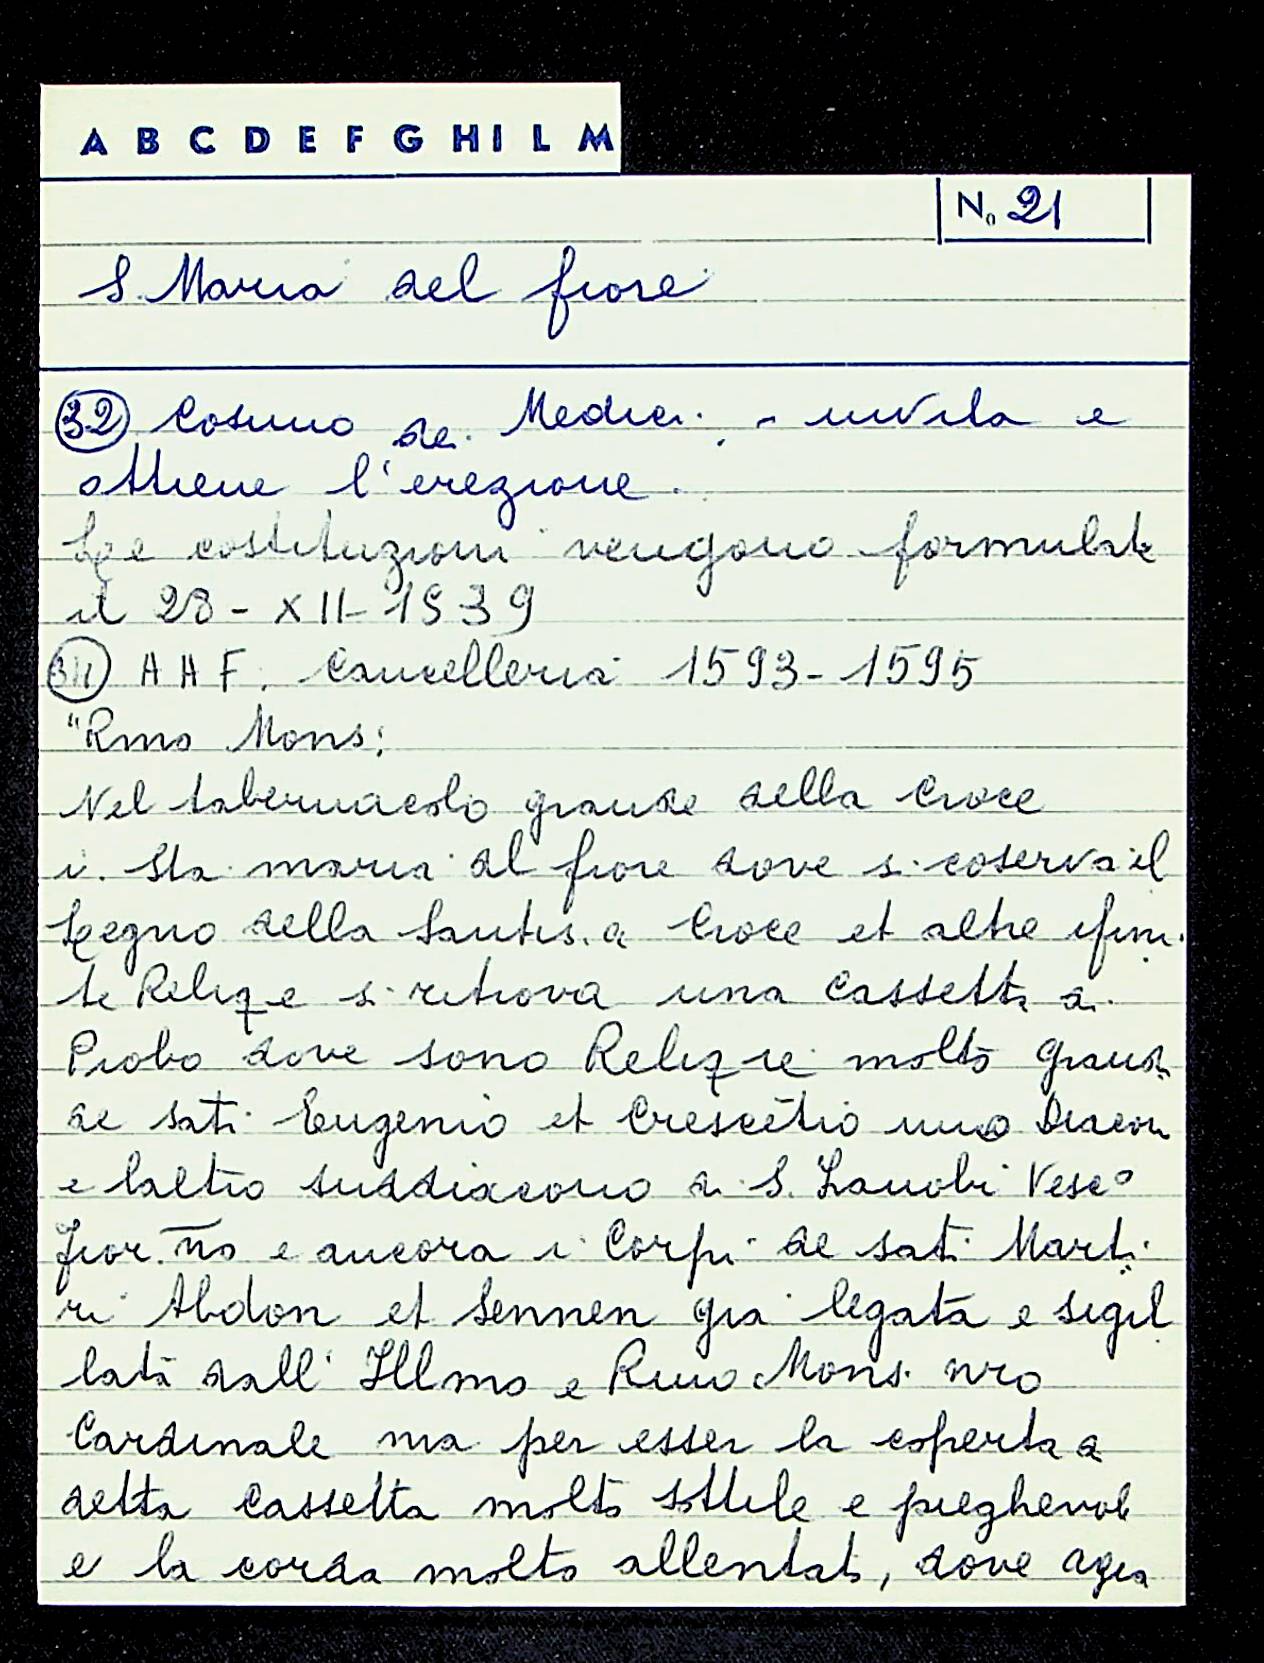 A B C D E F G H I L M
N. 21
S. Maria del fiore
32 Cosimo de Medici. - invita e
ottiene l'erezione.
Le costituzioni vengono formulate
il 28-XII-1539
A A F. Cancelleria 1593-1595
"Rmo Mons;
Nel tabernacolo grande della Croce
i. Sta maria del fiore dove si coserva il
Legno della Santis.a Croce et altre ifini
te Reliqe si ritrova una Cassetta di
Piobo dove sono Reliqie molto grand
de sati Eugenio et Crescetio uno Diacon
e laltro suddiacono di S. Zanobi Vesco
fior.no e ancora i Corpi de sati Marti
ri Abdon et Sennen gia legata e sigil
lata dall' Illmo e Rmo Mons. nro
Cardinale ma per esser la coperta di
detta Cassetta molto sottile e pieghevol
e la corda molto allentata, dove agia